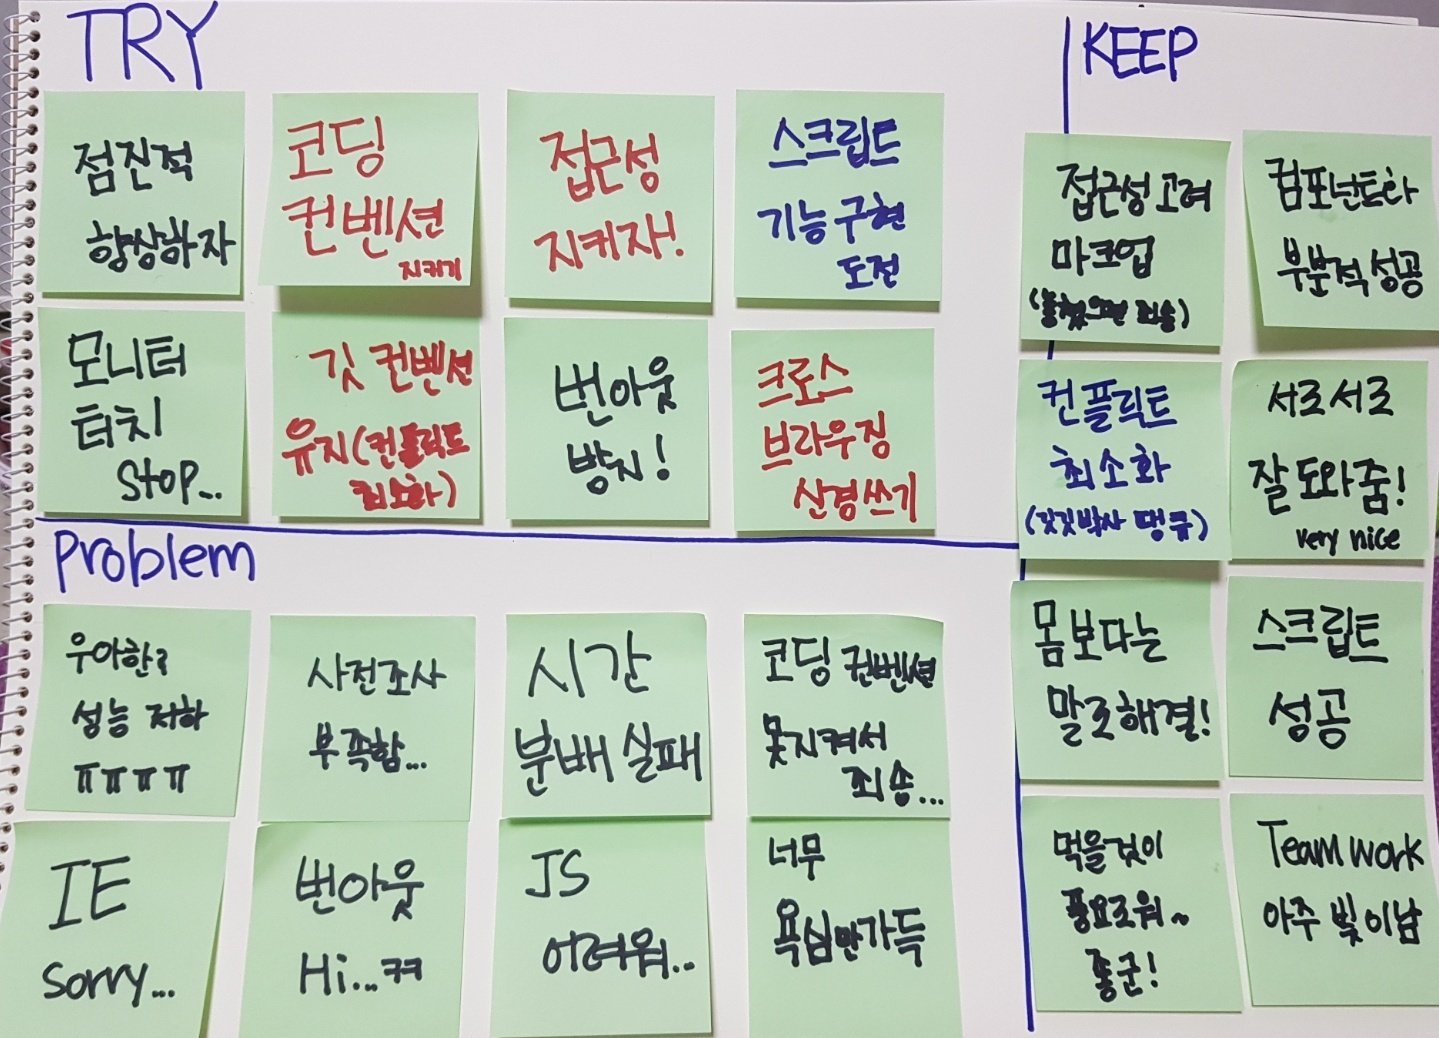 TRY
점진적
향상하자
코딩
컨벤션
지키기
접근성
지키자!
스크립트
기능구현
도전
모니터
터치
Stop...
깃 컨벤션
유지(컨플릭트
최소화)
번아웃
방지!
크로스
브라우징
신경쓰기
Problem
우아한?
성능 저하
ㅠㅠㅠㅠ
사전조사
부족함...
시간
분배 실패
코딩 컨벤션
못지켜서
죄송...
IE
sorry...
번아웃
Hi...ㅋㅋ
JS
어려워..
너무
욕심만가득
KEEP
접근성고려
마크업
(놓쳤으면 죄송)
컴포넌트화
부분적성공
컨플릭트
최소화
(깃깃박사 땡큐)
서로서로
잘도와줌!
very nice
몸보다는
말로해결!
스크립트
성공
먹을것이
풍요로워~
좋군!
Team work
아주 빛이남